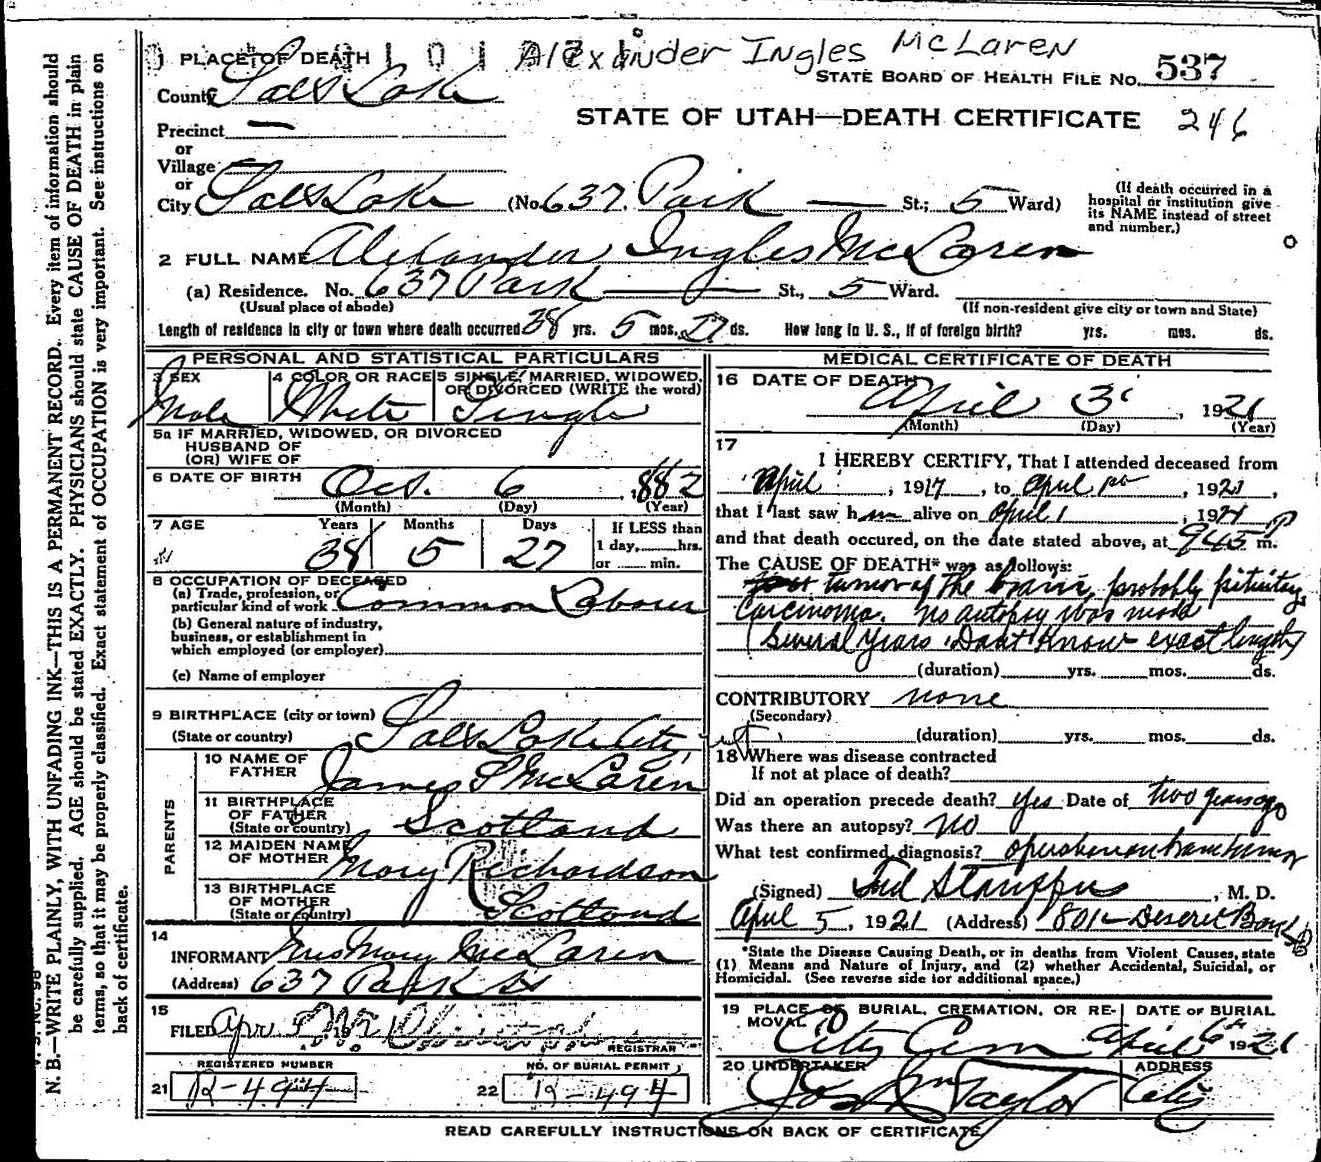 Alexander Ingles McLaren
1 PLACE OF DEATH
STATE BOARD OF HEALTH FILE No. 537
County Salt Lake
STATE OF UTAH—DEATH CERTIFICATE 246
Precinct
or
Village
or
City Salt Lake (No. 637 Park St.; 5 Ward)
(If death occurred in a hospital or institution give its NAME instead of street and number.)
2 FULL NAME Alexander Ingles McLaren
(a) Residence. No. 637 Park St., 5 Ward.
(Usual place of abode) (If non-resident give city or town and State)
Length of residence in city or town where death occurred 38 yrs. 5 mos. 27 ds. How long in U. S., if of foreign birth? yrs. mos. ds.
PERSONAL AND STATISTICAL PARTICULARS
3 SEX Male
4 COLOR OR RACE White
5 SINGLE, MARRIED, WIDOWED, OR DIVORCED (WRITE the word) Single
5a IF MARRIED, WIDOWED, OR DIVORCED
HUSBAND OF
(OR) WIFE OF
6 DATE OF BIRTH Oct. 6, 1882
(Month) (Day) (Year)
7 AGE Years 38 Months 5 Days 27
If LESS than
1 day, hrs.
or min.
8 OCCUPATION OF DECEASED
(a) Trade, profession, or
particular kind of work Common Laborer
(b) General nature of industry,
business, or establishment in
which employed (or employer)
(c) Name of employer
9 BIRTHPLACE (city or town)
(State or country) Salt Lake City
PARENTS
10 NAME OF FATHER James S McLaren
11 BIRTHPLACE OF FATHER
(State or country) Scotland
12 MAIDEN NAME OF MOTHER Mary Richardson
13 BIRTHPLACE OF MOTHER
(State or country) Scotland
14
INFORMANT Mrs Mary McLaren
(Address) 637 Park St
15
FILED Apr 192
REGISTRAR
REGISTERED NUMBER
21 R-494
NO. OF BURIAL PERMIT
22 R-494
MEDICAL CERTIFICATE OF DEATH
16 DATE OF DEATH
April 3, 1921
(Month) (Day) (Year)
17
I HEREBY CERTIFY, That I attended deceased from
April, 1917, to April 1st, 1921,
that I last saw him alive on April 1, 1921
and that death occured, on the date stated above, at 945 P m.
The CAUSE OF DEATH* was as follows:
tumor of the brain, probably pituitary
Carcinoma. No autopsy was made
(Several years. Don't Know exact length)
(duration) yrs. mos. ds.
CONTRIBUTORY none
(Secondary)
(duration) yrs. mos. ds.
18 Where was disease contracted
If not at place of death?
Did an operation precede death? yes Date of two years ago
Was there an autopsy? No
What test confirmed diagnosis? operation on brain tumor
(Signed), M. D.
April 5, 1921 (Address) 801- Deseret Bank
*State the Disease Causing Death, or in deaths from Violent Causes, state
(1) Means and Nature of Injury, and (2) whether Accidental, Suicidal, or
Homicidal. (See reverse side for additional space.)
19 PLACE OF BURIAL, CREMATION, OR REMOVAL City Cem
DATE OF BURIAL April 6th 1921
20 UNDERTAKER Jos Wm Taylor
ADDRESS City
READ CAREFULLY INSTRUCTIONS ON BACK OF CERTIFICATE
N. B.—WRITE PLAINLY, WITH UNFADING INK—THIS IS A PERMANENT RECORD. Every item of information should
be carefully supplied. AGE should be stated EXACTLY. PHYSICIANS should state CAUSE OF DEATH in plain
terms, so that it may be properly classified. Exact statement of OCCUPATION is very important. See instructions on
back of certificate.